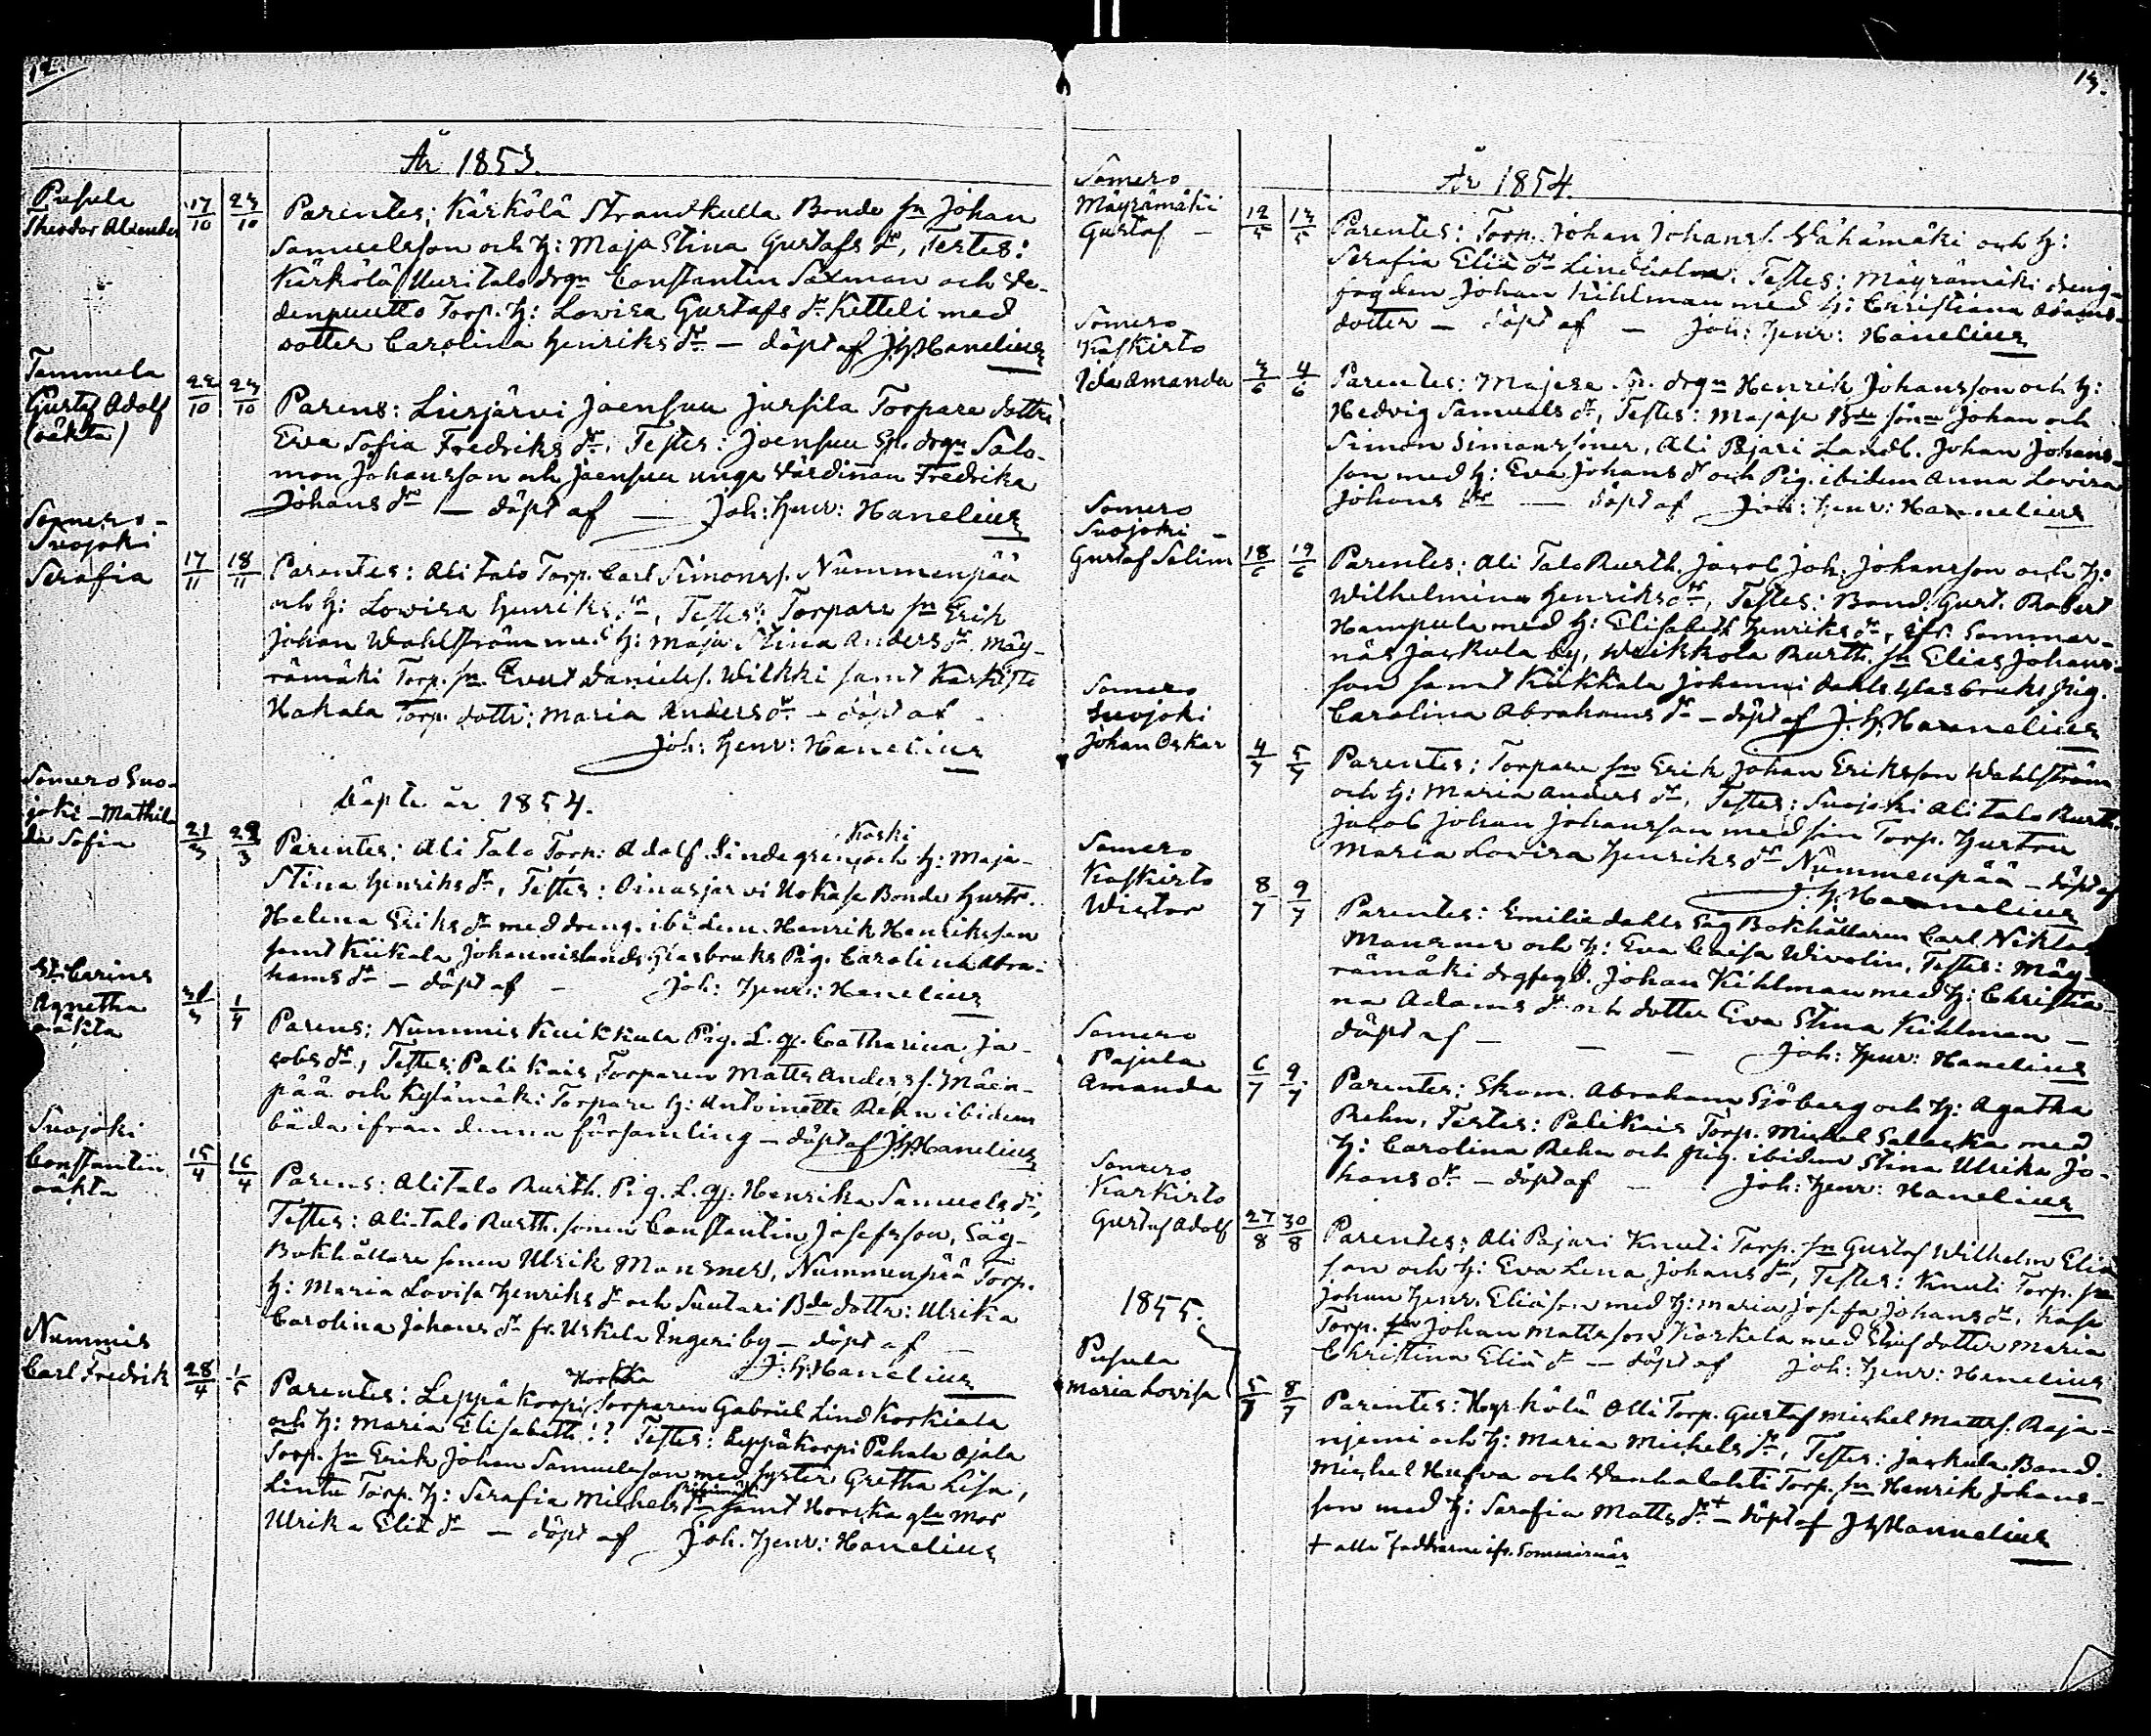 12.
År 1853.
Pusula
Theodor Alexander
17/10 23/10
Parentes: Kärkölä Strandkulla Bonde sn Johan
Samuelsson och h: Maja Stina Gustafs dr, Testes:
Kärkölä Uuritalo drgn Constantin Saxman och Ve-
denpuutto Torp. h: Lovisa Gustafs dr Ketteli med
dotter Carolina Henriks dr — döpt af J.H.Hanelius
Tammela
Gustaf Adolf
(oäkta)
22/10 23/10
Parens: Liesjärvi Joensuu Jussila Torpare dottr
Eva Sofia Fredriks dr. Testes: Joensuu Sn. drgn Salo-
mon Johansson och Joensuu unga Värdinnan Fredrika
Johans dr — döpt af — Joh: Henr: Hanelius
Somero-
Suojoki
Serafia
17/11 18/11
Parentes: Ali Talo Torp. Carl Simonss. Nummenpää
och h: Lovisa Henriks dr, Testes: Torpare sn Erik
Johan Wahlström med h: Maja Stina Anders dr. Mäy-
rämäki Torp. sn. Evert Daniels. Wilkki samt
Hakala Torp. dottr: Maria Anders dr — döpt af
Joh: Henr: Hanelius
Döpte år 1854.
Somero Suo-
joki - Mathil
da Sofia
21/3 22/3
Kaski
Parentes: Ali Talo Torp: Adolf Lindegren och h: Maja-
Stina Henriks dr, Testes: Oinasjarvi Bonde hustr.
Helena Eriks dr med dreng. ibidem. Henrik Henriksson
samt Kiikala Johannislunds Glasbruks Pig. Carolina Abra-
hams dr — döpt af — Joh: Henr: Hanelius
St. Carins
Agnetha
oäkta
1/4
Parens: Nummis Kuikkala Pig. L. qp. Catharina Ja-
cobs dr, Testes: Pali Kais Torparen Matts Anderss. Mäen-
pää och Kylämäki Torpare h: Antoinette Rehn ibidem
båda ifrån denna församling — döpt af J.H.Hanelius
Suojoki
Constantin
oäkta
15/4 16/4
Parens: Alitalo Rusth. Pig. L. qp. Henrika Samuels dr,
Testes: Ali-Talo Rusth. sonen Constantin Josefsson, Såg-
Bokhållare sonen Ulrik Mansner, Nummenpää Torp.
h: Maria Lovisa Henriks dr och Suutari Bde dottr: Ulrika
Carolina Johans dr fr. Uskela Ingeri by — döpt af
J: H: Hanelius
Nummis
Carl Fredrik
28/4 1/5
Parentes: Leppäkorpi Torparen Gabriel Lind Korkiala
och h: Maria Elisabeth !? Testes: Leppäkorpi Pahala Ojala
Torp. sn Erik Johan Samuelsson med syster Gretha Lisa,
Lintu Torp. h: Serafia Michels dr samt gla Mor
Ulrika Eliæ dr — döpt af Joh. Henr: Hanelius
13.
År 1854.
Somero
Mäyrämäki
Gustaf —
12/5 13/5
Parentes: Torp. Johan Johans s. Wähämäki och h:
Serafia Eliæ dr Lindholm. Testes: Mäyrämäki dreng-
fogden Johan Kihlman med h: Christiana Adams-
dotter — döpt af — Joh: Henr: Hanelius
Somero
Kaskisto
Ida Amanda
3/6 4/6
Parentes: Majase Sn. drgn Henrik Johansson och h:
Hedvig Samuels dr, Testes: Majase Bde sönr Johan och
Simon Simanssöner, Ali Pajari Landb. Johan Johans-
son med h: Eva Johans dr och Pig. ibidem Anna Lovisa
Johans dr — döpt af Joh: Henr: Hannelius
Somero
Suojoki —
Gustaf Selim
18/6 19/6
Parentes: Ali Talo Rusth. Jacob Joh. Johansson och h:
Wilhelmina Henriks dr, Testes: Bond. Gust. Robert
Hampula med h: Elisabeth Henriks dr, ifr. Sommar-
näs Jaskula by, Weikkola Rusth. sn Elias Johans-
son samt Kiikkala Johannisdahls Glasbruks pig.
Carolina Abrahams dr — döpt af J: H. Hannelius
Somero
Suojoki
Johan Oskar
4/7 5/7
Parentes: Torpare sn Erik Johan Eriksson Wahlström
och h: Maria Anders dr, Testes: Suojoki Alitalo Rusth.
Jacob Johan Johansson med sin Torp. hustru
Maria Lovisa Henriks dr Nummenpää — döpt af
J. H. Hannelius
Somero
Kaskisto
Wictor
8/7 9/7
Parentes: Emiliedahls Såg Bokhållaren Carl Niklas
Mansner och h: Eva Caisa Wivolin, Testes: Mäy-
rämäki drgfogd. Johan Kihlman med h: Christia-
na Adams dr och dotter Eva Stina Kihlman —
döpt af — — — Joh: Henr: Hanelius
Somero
Pajula
Amanda
6/7 9/7
Parentes: Skom. Abraham Sjöberg och h: Agatha
Rehn, Testes: Palikais Torp. Michel Salacka med
h: Carolina Rehn och pig. ibidem Stina Ulrika Jo-
hans dr — döpt af — Joh: Henr: Hanelius
Somero
Kaskisto
Gustaf Adolf
27/8 30/8
Parentes: Ali Pajari Knuti Torp. sn Gustaf Wilhelm Eliæ
son och h: Eva Lena Johans dr, Testes: Knuti Torp. sn
Johan Henr. Eliæson med h: Maria Josefa Johans dr,
Torp. sn Johan Mattsson Korkela med dotter Maria
Christina Eliæ dr — döpt af Joh: Henr: Hanelius
1855.
Pusula
Maria Lovisa
5/7 8/7
Parentes: Hyrkölä Olli Torp. Gustaf Michel Matts s. Raja-
niemi och h: Maria Michels dr, Testes: Jaskula Bond.
Michel Hufva och Vanhalahti Torp. sn Henrik Johans-
son med h: Serafia Matts dr + — döpt af J H Hannelius
+ alla faddrarne ifr. Sommernäs